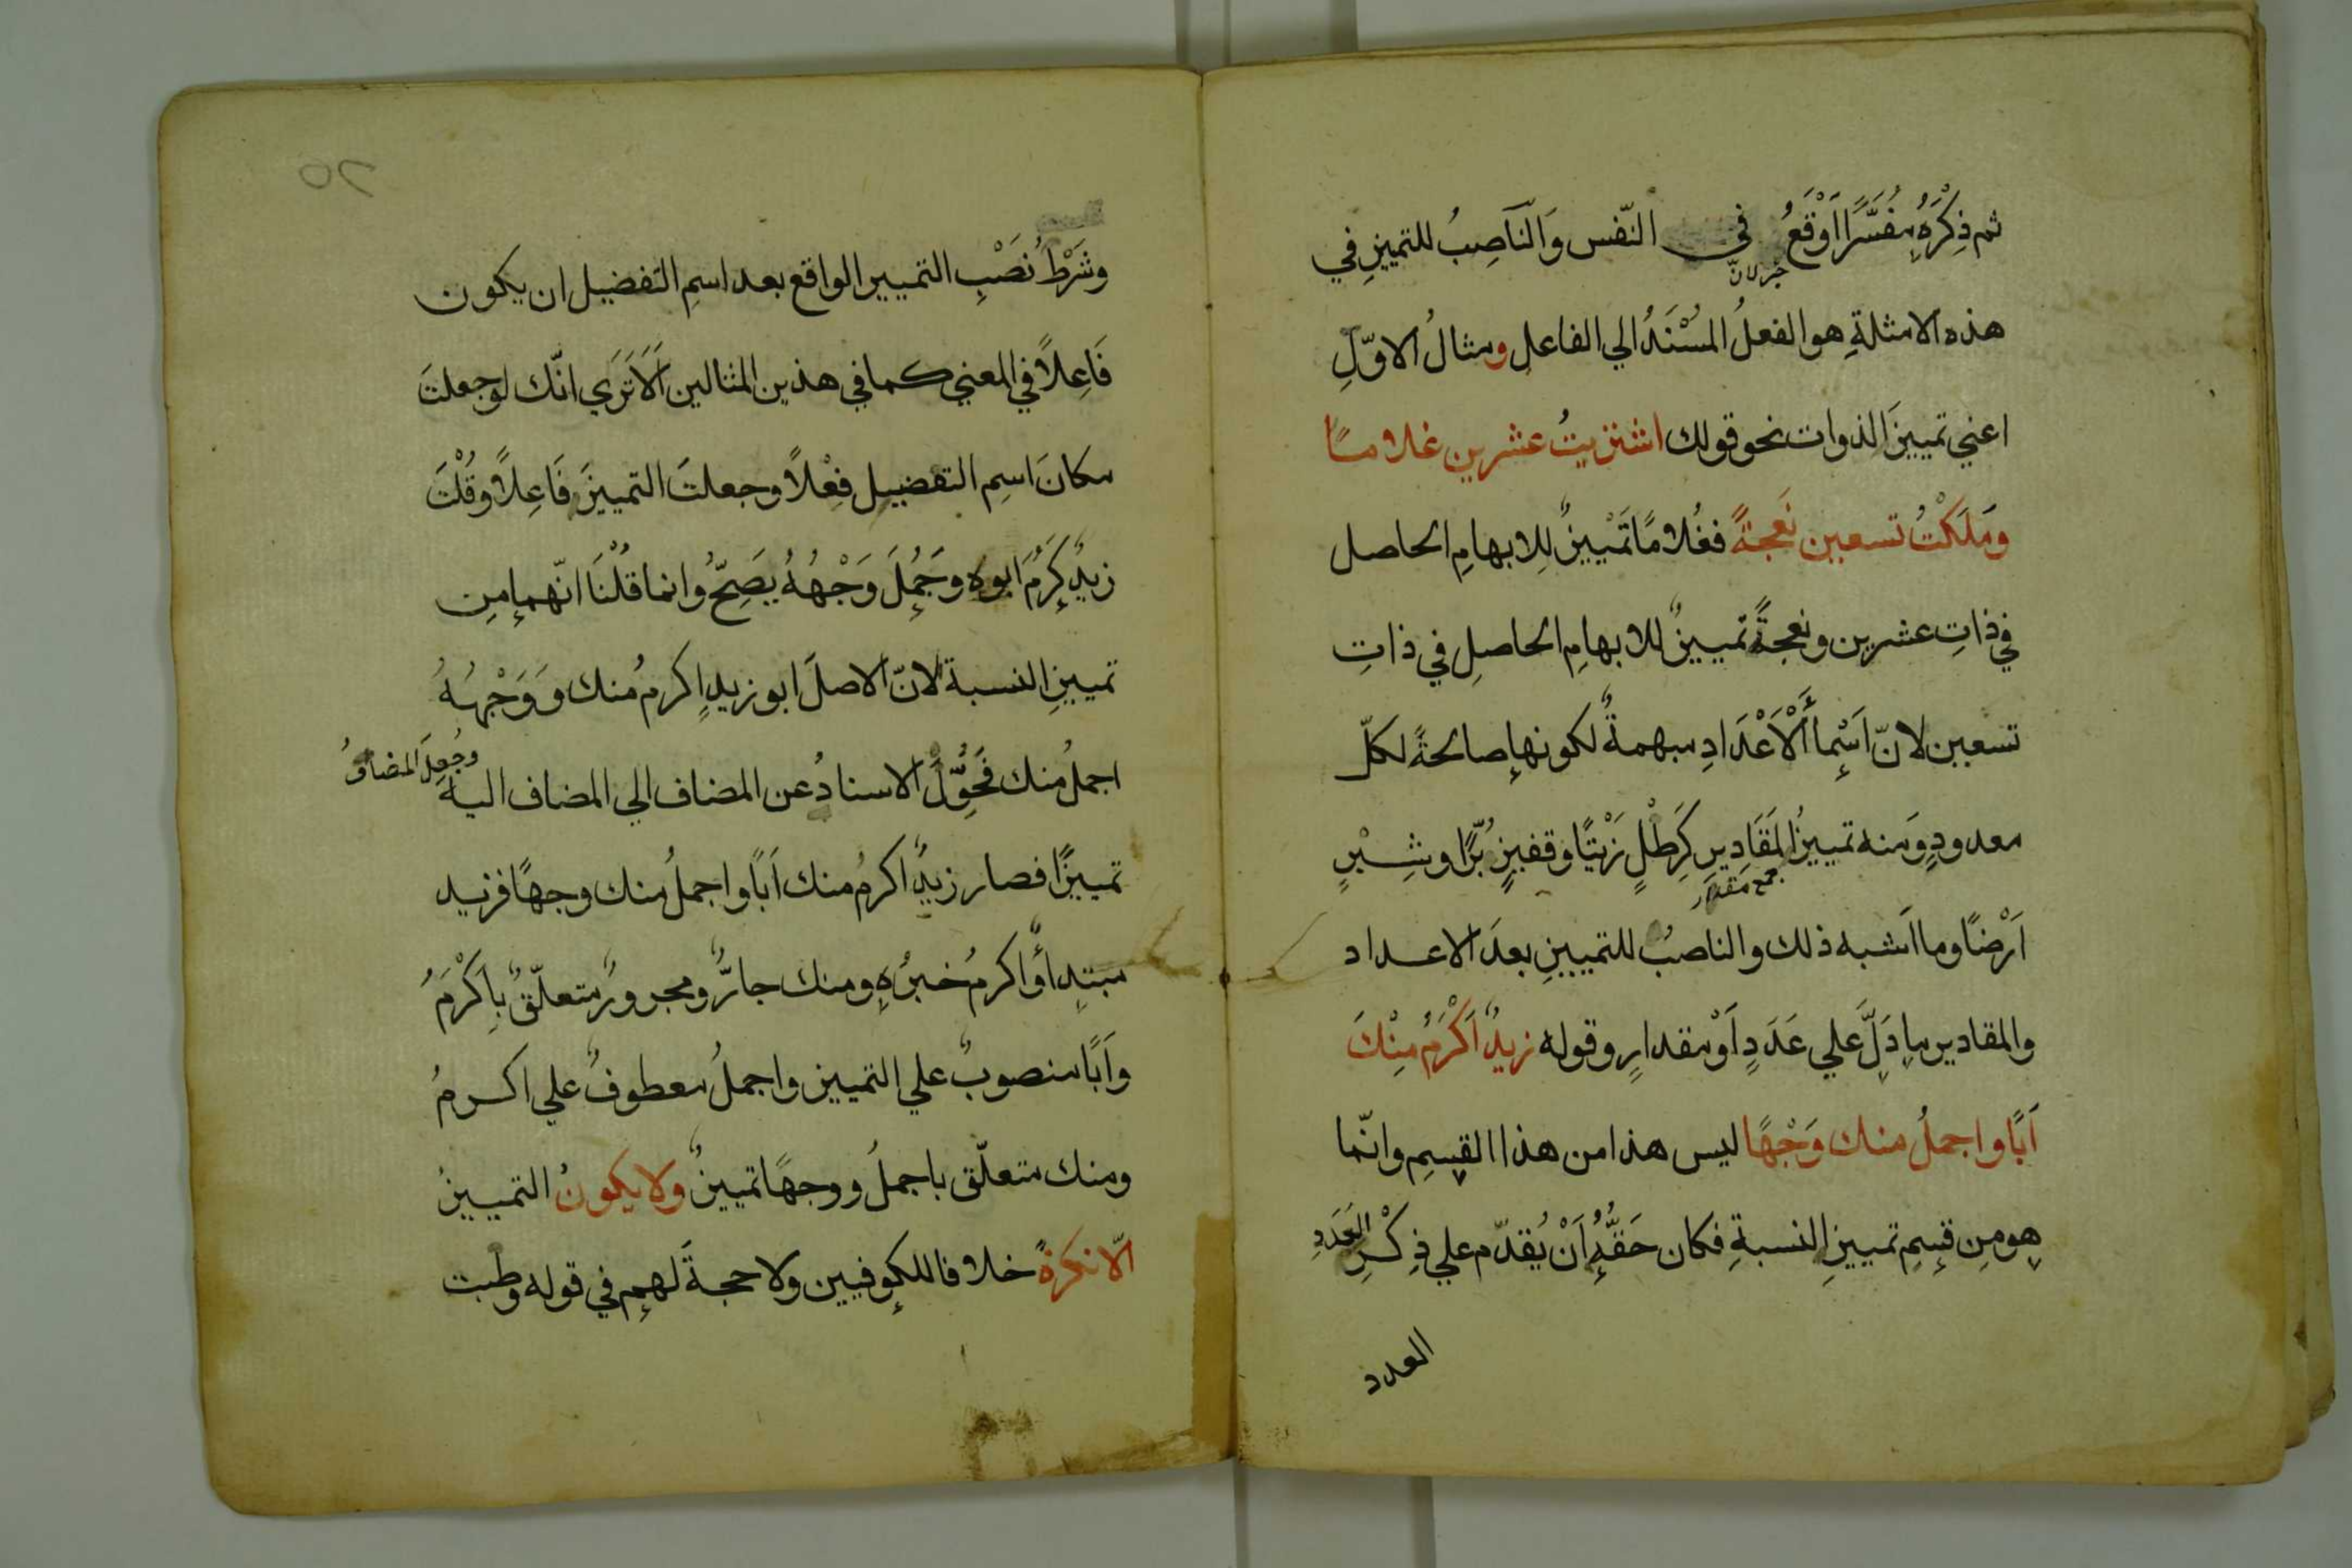 ثم ذِكْرَهُ مفَسَّرًا اَوْقَعُ في النّفس وَالنّاصِبُ للتميزِ في
خبر لانّ
هذه الامثلةِ هو الفعلُ المُسْنَدُ الي الفاعلِ ومثالُ الاوّلِ
اعني تمييزَ الذوات نحو قولك اشتريتُ عشرين غلامًا
ومَلَكْتُ تسعين نَعجةً فغُلامًا تَمْييزٌ لِلابهامِ الحاصل
في ذاتِ عشرين ونعجةً تمييزٌ للابهامِ الحاصلِ في ذاتِ
تسعين لانّ اَسْمآءَ الْاَعْدَادِ مبهمةٌ لكونها صالحةً لكلّ
معدودٍ وَمنه تمييزُ المَقَاديرِ كَرِطْلٍ زَيْتًا وقفيزٍ بُرًّا وشِبْرٍ
جمع مقدار
اَرْضًا وما اَشبه ذلك والناصبُ للتمييزِ بعدَ الاعداد
والمقادير ما دَلَّ علي عَدَدٍ اَوْ مقدارٍ وقوله زيدٌ اَكْرَمُ مِنْكَ
اَبًا واجملُ منك وَجْهًا ليس هذا من هذا القسِمِ وانّما
هو مِن قسِمِ تمييزِ النسبةِ فكان حَقُّهُ اَنْ يُقدّم علي ذِكْرِ العَدَدِ
العدد
٢٥
وشَرْطُ نَصْبِ التمييز الواقع بعد اسمِ التفضيل ان يكون
فَاعِلاً في المعني كما في هذين المثالين اَلاَ تَرَي انّك لو جعلتَ
مكانَ اسِم التفضيل فِعْلاً وجعلتَ التمييزَ فَاعِلاً وقُلْتَ
زيدٌ كَرُمَ ابوه وجَمُلَ وَجْهُهُ يصَحُّ وانما قُلْنَا انّهما مِن
تمييزِ النسبة لانّ الاصلَ ابو زيدٍ اكرمُ منك وَوَجْهُهُ
اجملُ منك فحُوِّلَ الاسنادُ عن المضاف الي المضاف اليه وجُعِلَ المضافُ
تمييزًا فصار زيدٌ اكرمُ منك اَبًا واجملُ منك وجهًا فزيد
مبتدأٌ واكرمُ خبرُهُ ومنك جارٌّ ومجرورٌ متعلّقٌ باَكْرَمَ
واَبًا منصوبٌ علي التمييز واجملُ معطوفٌ علي اكرمُ
ومنك متعلّق باجملُ ووجهًا تمييزٌ ولا يكونُ التمييزُ
الّا نكرةً خلافا للكوفيين ولا حجةَ لهم في قوله وطبت